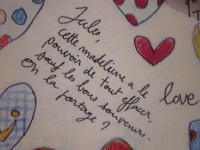 Jules,
cette madeleine a le
pouvoir de tout effacer
sauf les bons souvenirs.
On la partage ?
love